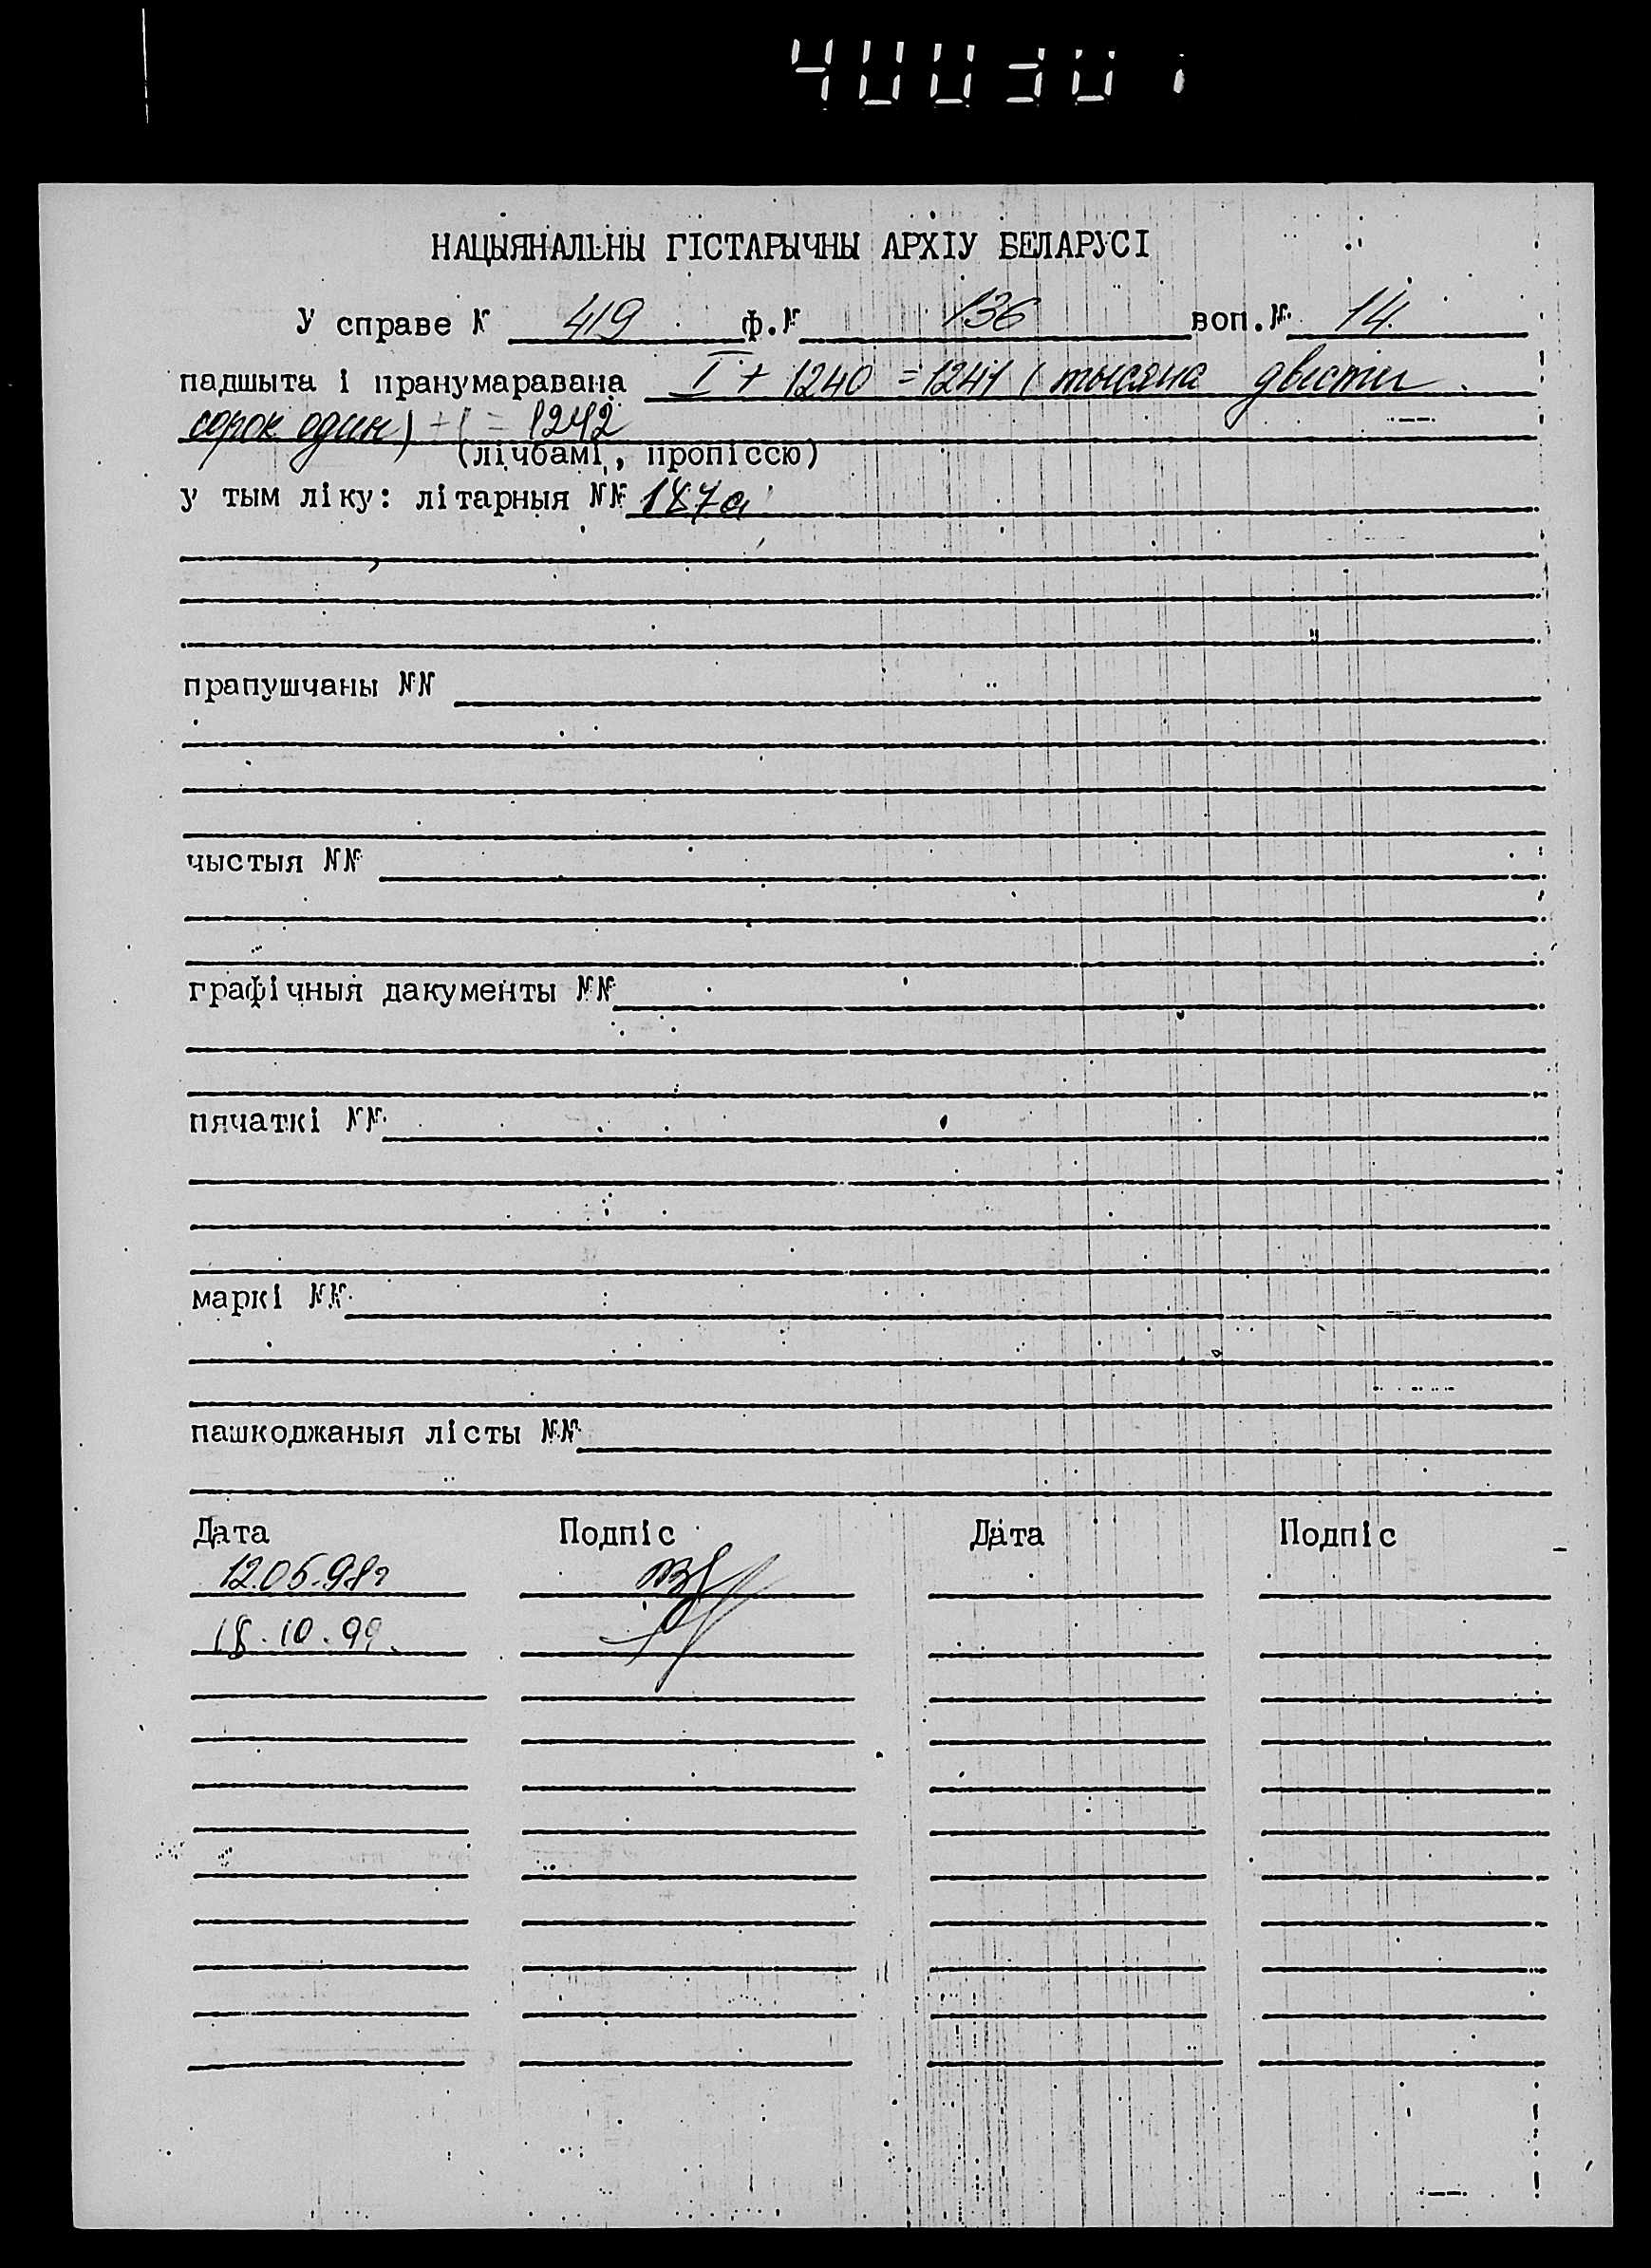 НАЦЫЯНАЛЬНЫ ГІСТАРЫЧНЫ АРХІУ БЕЛАРУСІ
У справе № 419 ф.№ 136 воп.№ 14
падшыта і пранумаравана I + 1240 = 1241 (тысяча двести
сорок один) + 1 = 1242
(лічбамі, пропіссю)
у тым ліку: літарныя №№ 187а
прапушчаны №№
чыстыя №№
графічныя дакументы №№
пячаткі №№
маркі №№
пашкоджаныя лісты №№
Дата Подпіс Дата Подпіс
12.05.98г
18.10.99.